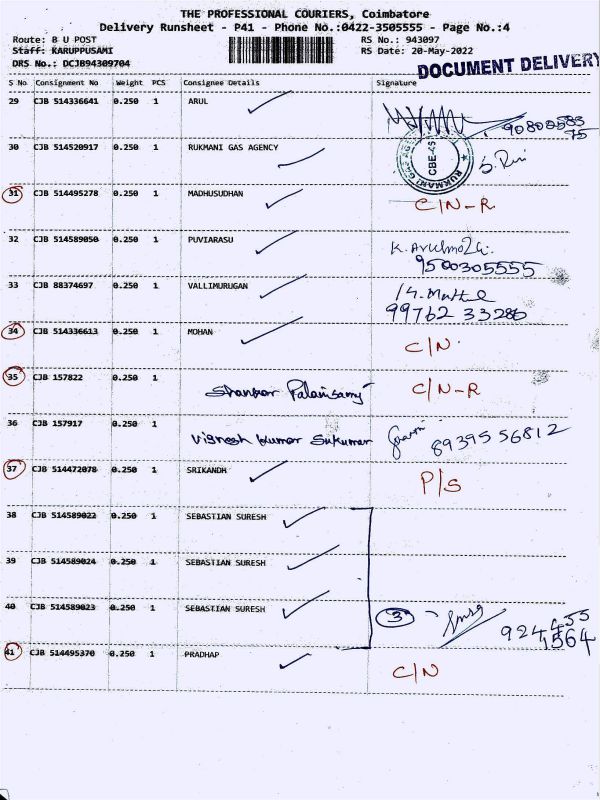 THE PROFESSIONAL COURIERS, Coimbatore
Delivery Runsheet - P41 - Phone No.:0422-3505555 - Page No.:4
Route: B U POST RS No.: 943097
Staff: KARUPPUSAMI RS Date: 20-May-2022
DRS No.: DCJB94309704 DOCUMENT DELIVERY
S No Consignment No Weight PCS Consignee Details Signature
29 CJB 514336641 0.250 1 ARUL
30 CJB 514520917 0.250 1 RUKMANI GAS AGENCY
RUKMANI GAS AGE
CBE-45
31 CJB 514495278 0.250 1 MADHUSUDHAN C/N-R
32 CJB 514589050 0.250 1 PUVIARASU
9500305555
33 CJB 88374697 0.250 1 VALLIMURUGAN
99762 33286
34 CJB 514336613 0.250 1 MOHAN C/N
35 CJB 157822 0.250 1 Shankar Palanisamy C/N-R
36 CJB 157917 0.250 1 Vignesh kumar Sukumar 89395 56812
37 CJB 514472078 0.250 1 SRIKANDH P/S
38 CJB 514589022 0.250 1 SEBASTIAN SURESH
39 CJB 514589024 0.250 1 SEBASTIAN SURESH
40 CJB 514589023 0.250 1 SEBASTIAN SURESH 3
924455
1564
41 CJB 514495370 0.250 1 PRADHAP C/N